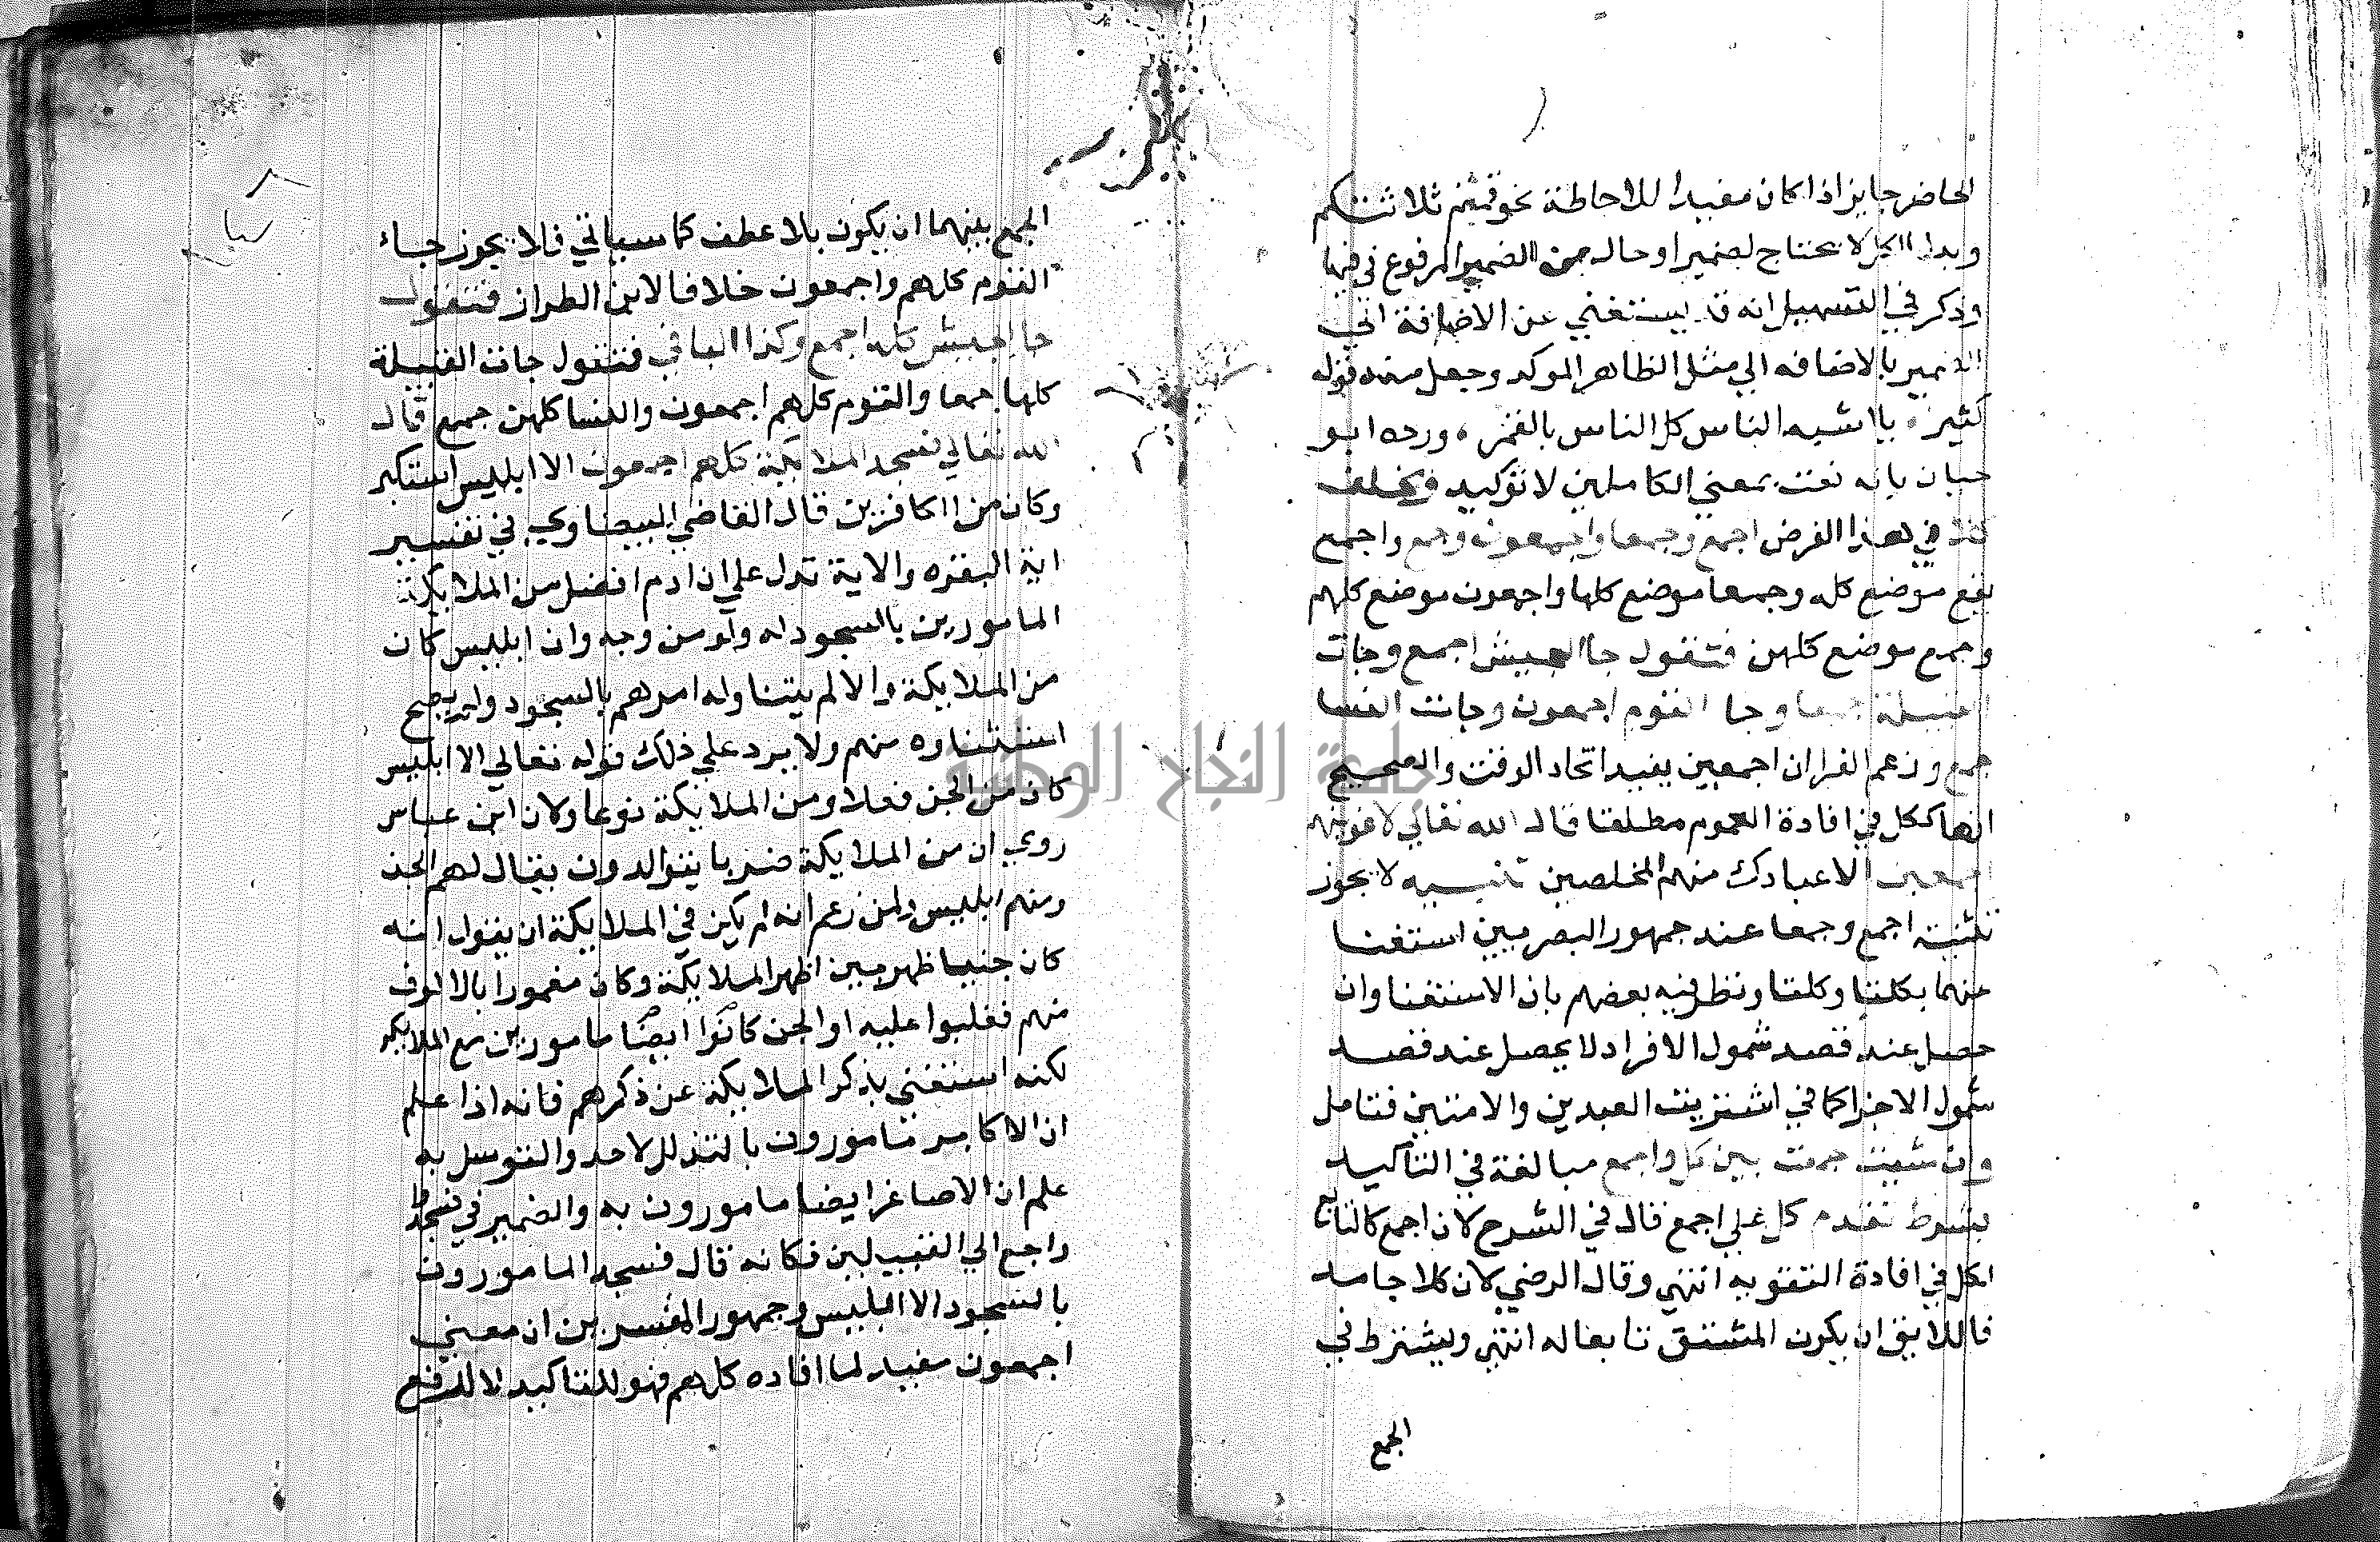 الحاضر جايز اذا كان مفيدا للاحاطة نحو قمتم ثلاثتكم
وبدل الكل لا يحتاج لضمير او حال من الضمير المرفوع في فيها
وذكر في التسهيل انه قد يستغني عن الاضافة الي
الضمير بالاضافه الي مثل الظاهر الموكد وجعل منه قوله
كثير يا اشبه الناس كل الناس بالقمر ورده ابو
حيان بانه نعت بمعني الكاملين لا توكيد ويخلف
كلا في هذا الغرض اجمع وجمعا واجمعون وجمع واجمع
يقع موضع كله وجمعا موضع كلها واجمعون موضع كلهم
وجمع موضع كلهن فتقول جا الجيش اجمع وجات
القبيلة جمعا وجا القوم اجمعون وجات النسا
جمع وزعم الفرا ان اجمعين يفيد اتحاد الوقت والصحيح
انها ككل في افادة العموم مطلقا قال الله تعالي لاغوينهم
اجمعين الا عبادك منهم المخلصين تنبيه لا يجوز
تثنية اجمع وجمعا عند جمهور البصريين استغنا
عنهما بكلا وكلتا ونظر فيه بعضهم بان الاستغنا وان
حصل عند قصد شمول الافراد لا يحصل عند قصد
شمول الاجزا كما في اشتريت العبدين والامتين فتامل
وان شيت جمعت بين كل واجمع مبالغة في التاكيد
بشرط تقدم كل علي اجمع قال في الشرح لان اجمع كالتابع
لكل في افادة التقويه انتهي وقال الرضي لان كلا جامد
فاللايق ان يكون المشتق تابعا له انتهي ويشترط في
الجمع
الجمع بينهما ان يكون بلا عطف كما سياتي فلا يجوز جاء
القوم كلهم واجمعون خلافا لابن الطراز فتقول
جا الجيش كله اجمع وكذا الباقي فتقول جات القبيلة
كلها جمعا والقوم كلهم اجمعون والنسا كلهن جمع قال
الله تعالي فسجد الملايكة كلهم اجمعون الا ابليس استكبر
وكان من الكافرين قال القاضي البيضاوي في تفسير
اية البقره والاية تدل علي ان ادم افضل من الملايكة
المامورين بالسجود له ولو من وجه وان ابليس كان
من الملايكة والا لم يتناوله امرهم بالسجود ولم يصح
استثناوه منهم ولا يرد علي ذلك قوله تعالي الا ابليس
كان من الجن فعلا ومن الملايكة نوعا ولان ابن عباس
روي ان من الملايكة ضربا يتوالدون يقال لهم الجن
ومنهم ابليس ولمن زعم انه لم يكن في الملايكة ان يقول انه
كان جنيا ظهر بين اظهر الملايكة وكان مغمورا بالالوف
منهم فغلبوا عليه او الجن كانوا ايضا مامورين مع الملايكة
لكنه استغني بذكر الملايكة عن ذكرهم فانه اذا علم
ان الاكابر مامورون بالتذلل لاحد والتوسل به
علم ان الاصاغر ايضا مامورون به والضمير في فسجد
راجع الي القبيلين فكانه قال فسجد المامورون
بالسجود الا ابليس وجمهور المفسرين ان معني
اجمعون مفيد لما افاده كلهم فهو للتاكيد لا لدفع
جامعة النجاح الوطنية